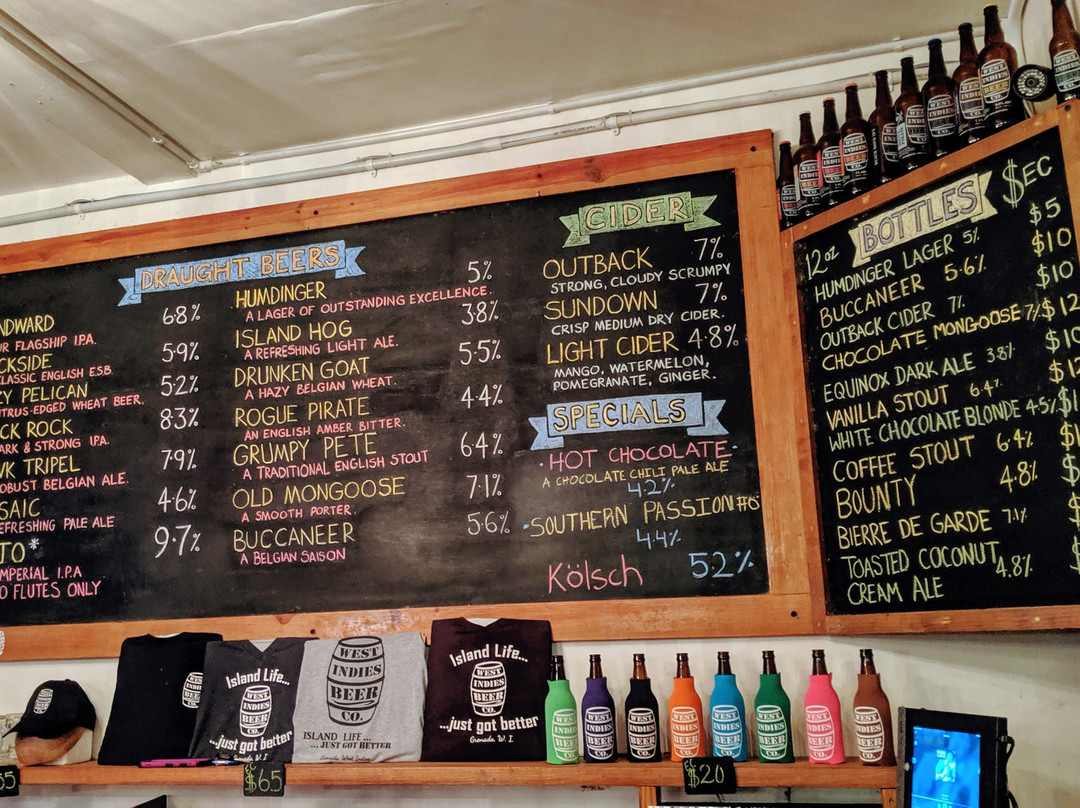 DRAUGHT BEERS
NDWARD 6.8%
FLAGSHIP I.P.A.
CKSIDE 5.9%
CLASSIC ENGLISH E.S.B.
ZY PELICAN 5.2%
TRUS-EDGED WHEAT BEER.
CK ROCK 8.3%
ARK & STRONG I.P.A.
WK TRIPEL 7.9%
OBUST BELGIAN ALE.
SAIC 4.6%
EFRESHING PALE ALE
TO* 9.7%
MPERIAL I.P.A
O FLUTES ONLY
HUMDINGER 5%
A LAGER OF OUTSTANDING EXCELLENCE.
ISLAND HOG 3.8%
A REFRESHING LIGHT ALE.
DRUNKEN GOAT 5.5%
A HAZY BELGIAN WHEAT.
ROGUE PIRATE 4.4%
AN ENGLISH AMBER BITTER.
GRUMPY PETE 6.4%
A TRADITIONAL ENGLISH STOUT
OLD MONGOOSE 7.1%
A SMOOTH PORTER.
BUCCANEER 5.6%
A BELGIAN SAISON
CIDER
OUTBACK 7%
STRONG, CLOUDY SCRUMPY
SUNDOWN 7%
CRISP MEDIUM DRY CIDER.
LIGHT CIDER 4.8%
MANGO, WATERMELON,
POMEGRANATE, GINGER.
SPECIALS
HOT CHOCOLATE
A CHOCOLATE CHILI PALE ALE
4.2%
SOUTHERN PASSION #6
4.4%
Kölsch 5.2%
12oz BOTTLES $EC
HUMDINGER LAGER 5% $5
BUCCANEER 5.6% $10
OUTBACK CIDER 7% $10
CHOCOLATE MONGOOSE 7% $12
EQUINOX DARK ALE 3.8%
VANILLA STOUT 6.4%
WHITE CHOCOLATE BLONDE 4.5%
COFFEE STOUT 6.4%
BOUNTY 4.8%
BIERRE DE GARDE 7.1%
TOASTED COCONUT 4.8%
CREAM ALE
Island Life...
WEST
INDIES
BEER
CO.
...just got better
Grenada W.I.
WEST
INDIES
BEER
CO.
ISLAND LIFE...
...JUST GOT BETTER
Grenada W.I.
Island Life...
WEST
INDIES
BEER
CO.
...just got better
Grenada W.I.
WEST
INDIES
BEER
CO.
WEST
INDIES
BEER
CO.
WEST
INDIES
BEER
CO.
WEST
INDIES
BEER
CO.
WEST
INDIES
BEER
CO.
WEST
INDIES
BEER
CO.
WEST
INDIES
BEER
CO.
WEST
INDIES
BEER
CO.
$65
$20